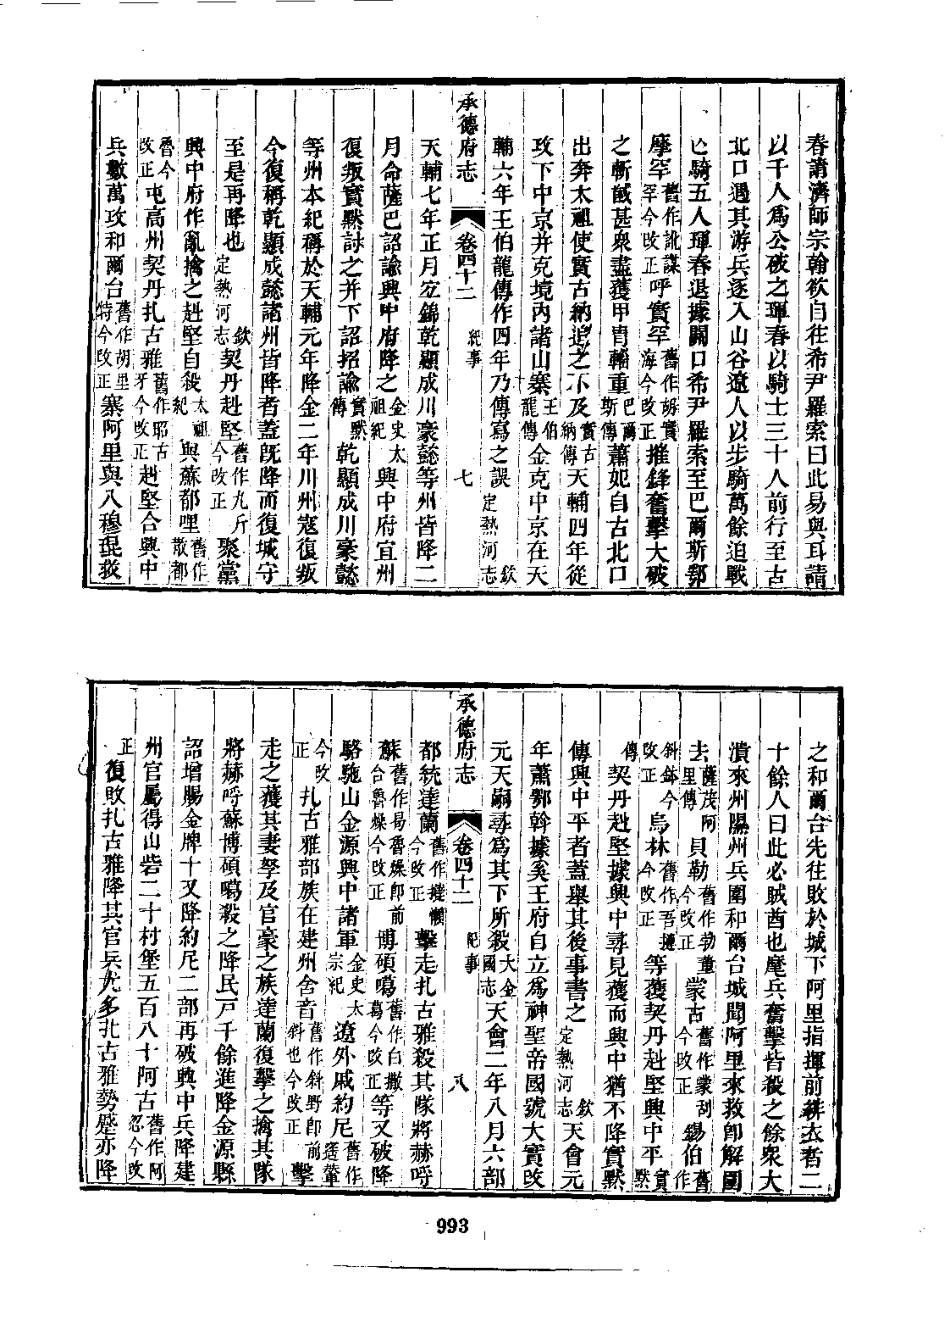 春請濟師宗翰欲自往希尹羅索曰此易與耳請
以千人爲公破之琿春以騎士三十人前行至古
北口遇其游兵逐入山谷遼人以步騎萬餘迫戰
亡騎五人琿春退據關口希尹羅索至巴爾斯鄂
摩罕舊作訛謀罕今改正呼實罕舊作胡實海今改正推鋒奮擊大破
之斬馘甚衆盡獲甲胄輜重巴爾斯傳蕭妃自古北口
出奔太祖使實古納追之不及實古納傳天輔四年從
攻下中京并克境內諸山寨王伯龍傳金克中京在天
輔六年王伯龍傳作四年乃傳寫之誤欽定熱河志
承德府志 卷四十二 紀事 七
天輔七年正月宜錦乾顯成川豪懿等州皆降二
月命薩巴詔諭興中府降之金史太祖紀興中府宜州
復叛實默討之并下詔招諭實默傳乾顯成川豪懿
等州本紀稱於天輔元年降金二年川州寇復叛
今復稱乾顯成懿諸州皆降者蓋旣降而復城守
至是再降也欽定熱河志契丹赳堅舊作九斤今改正聚黨
興中府作亂擒之赳堅自殺太祖紀與蘇都哩舊作散都
魯今改正屯高州契丹扎古雅舊作昭古牙今改正赳堅合興中
兵數萬攻和爾台舊作胡里特今改正寨阿里與八穆琨救
之和爾台先往敗於城下阿里指揮前緋衣者二
十餘人曰此必賊酋也麾兵奮擊皆殺之餘衆大
潰來州隰州兵圍和爾台城聞阿里來救卽解圍
去薩茂阿里傳貝勒舊作勃菫今改正蒙古舊作蒙刮今改正錫伯舊作
斜鉢今改正烏林舊作吾撻今改正等獲契丹赳堅興中平實默
傳契丹赳堅據興中尋見獲而興中猶不降實默
傳興中平者蓋舉其後事書之欽定熱河志天會元
年蕭鄂幹據奚王府自立爲神聖帝國號大實改
元天嗣尋爲其下所殺大金國志天會二年八月六部
承德府志 卷四十二 紀事 八
都統達蘭舊作撻懶今改正擊走扎古雅殺其隊將赫呼
蘇舊作曷魯燥卽前合魯燥今改正博碩噶舊作白撒葛今改正等又破降
駱駝山金源興中諸軍金史太宗紀遼外戚約尼舊作遙輦
今改正扎古雅部族在建州舍音舊作斜野卽前斜也今改正擊
走之獲其妻孥及官豪之族達蘭復擊之擒其隊
將赫呼蘇博碩噶殺之降民戶千餘進降金源縣
詔增賜金牌十又降約尼二部再破興中兵降建
州官屬得山砦二十村堡五百八十阿古舊作阿忽今改
正復敗扎古雅降其官兵尤多扎古雅勢蹙亦降
993